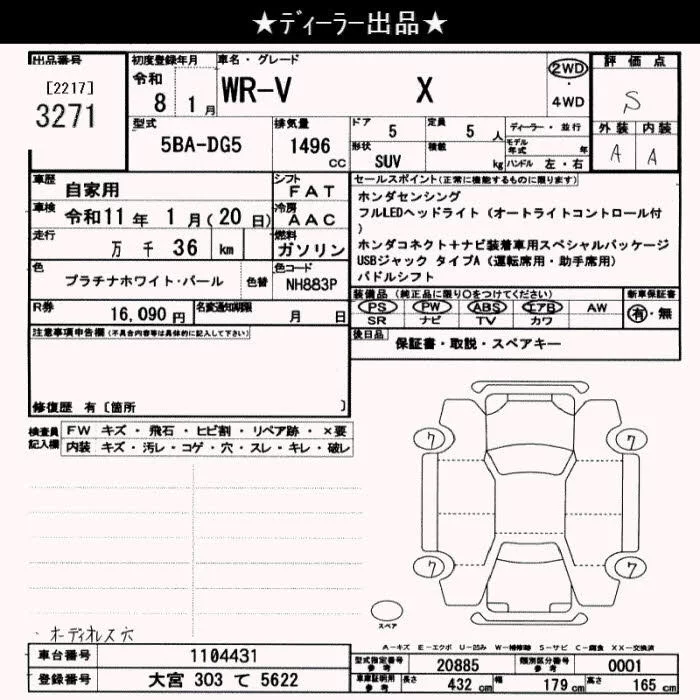 ★ディーラー出品★
出品番号
[2217]
3271
初度登録年月
令和
8 1 月
車名・グレード
WR-V X
2WD
・
4WD
評価点
S
外装 内装
A A
型式
5BA-DG5
排気量
1496
CC
ドア
5
定員
5 人
形状
SUV
積載
kg
ディーラー・並行
モデル年式 年
ハンドル 左・右
車歴
自家用
シフト
FAT
車検
令和11年 1月(20日)
冷房
AAC
走行
万 千 36 km
燃料
ガソリン
色
プラチナホワイト・パール
色替
色コード
NH883P
R券
16,090 円
名変通知期限
月 日
セールスポイント(正常に機能するものに限ります)
ホンダセンシング
フルLEDヘッドライト(オートライトコントロール付
)
ホンダコネクト+ナビ装着車用スペシャルパッケージ
USBジャック タイプA(運転席用・助手席用)
パドルシフト
装備品(純正品に限り○をつけてください)
PS PW ABS エアB AW
SR ナビ TV カワ
新車保証書
有・無
注意事項申告欄(不具合内容等は具体的に記入して下さい)
後日品
保証書・取説・スペアキー
修復歴 有〔箇所 〕
検査員
記入欄
FW キズ・飛石・ヒビ割・リペア跡・×要
内装 キズ・汚レ・コゲ・穴・スレ・キレ・破レ
7 7
7 7
スペア
・オーディオレス穴
A-キズ E-エクボ U-凹み W-補修跡 S-サビ C-腐食 XX-交換済
車台番号
1104431
登録番号
大宮 303 て 5622
型式指定番号
参考
20885
類別区分番号
参考
0001
車庫証明用
参考
長さ 432 cm
幅 179 cm
高さ 165 cm